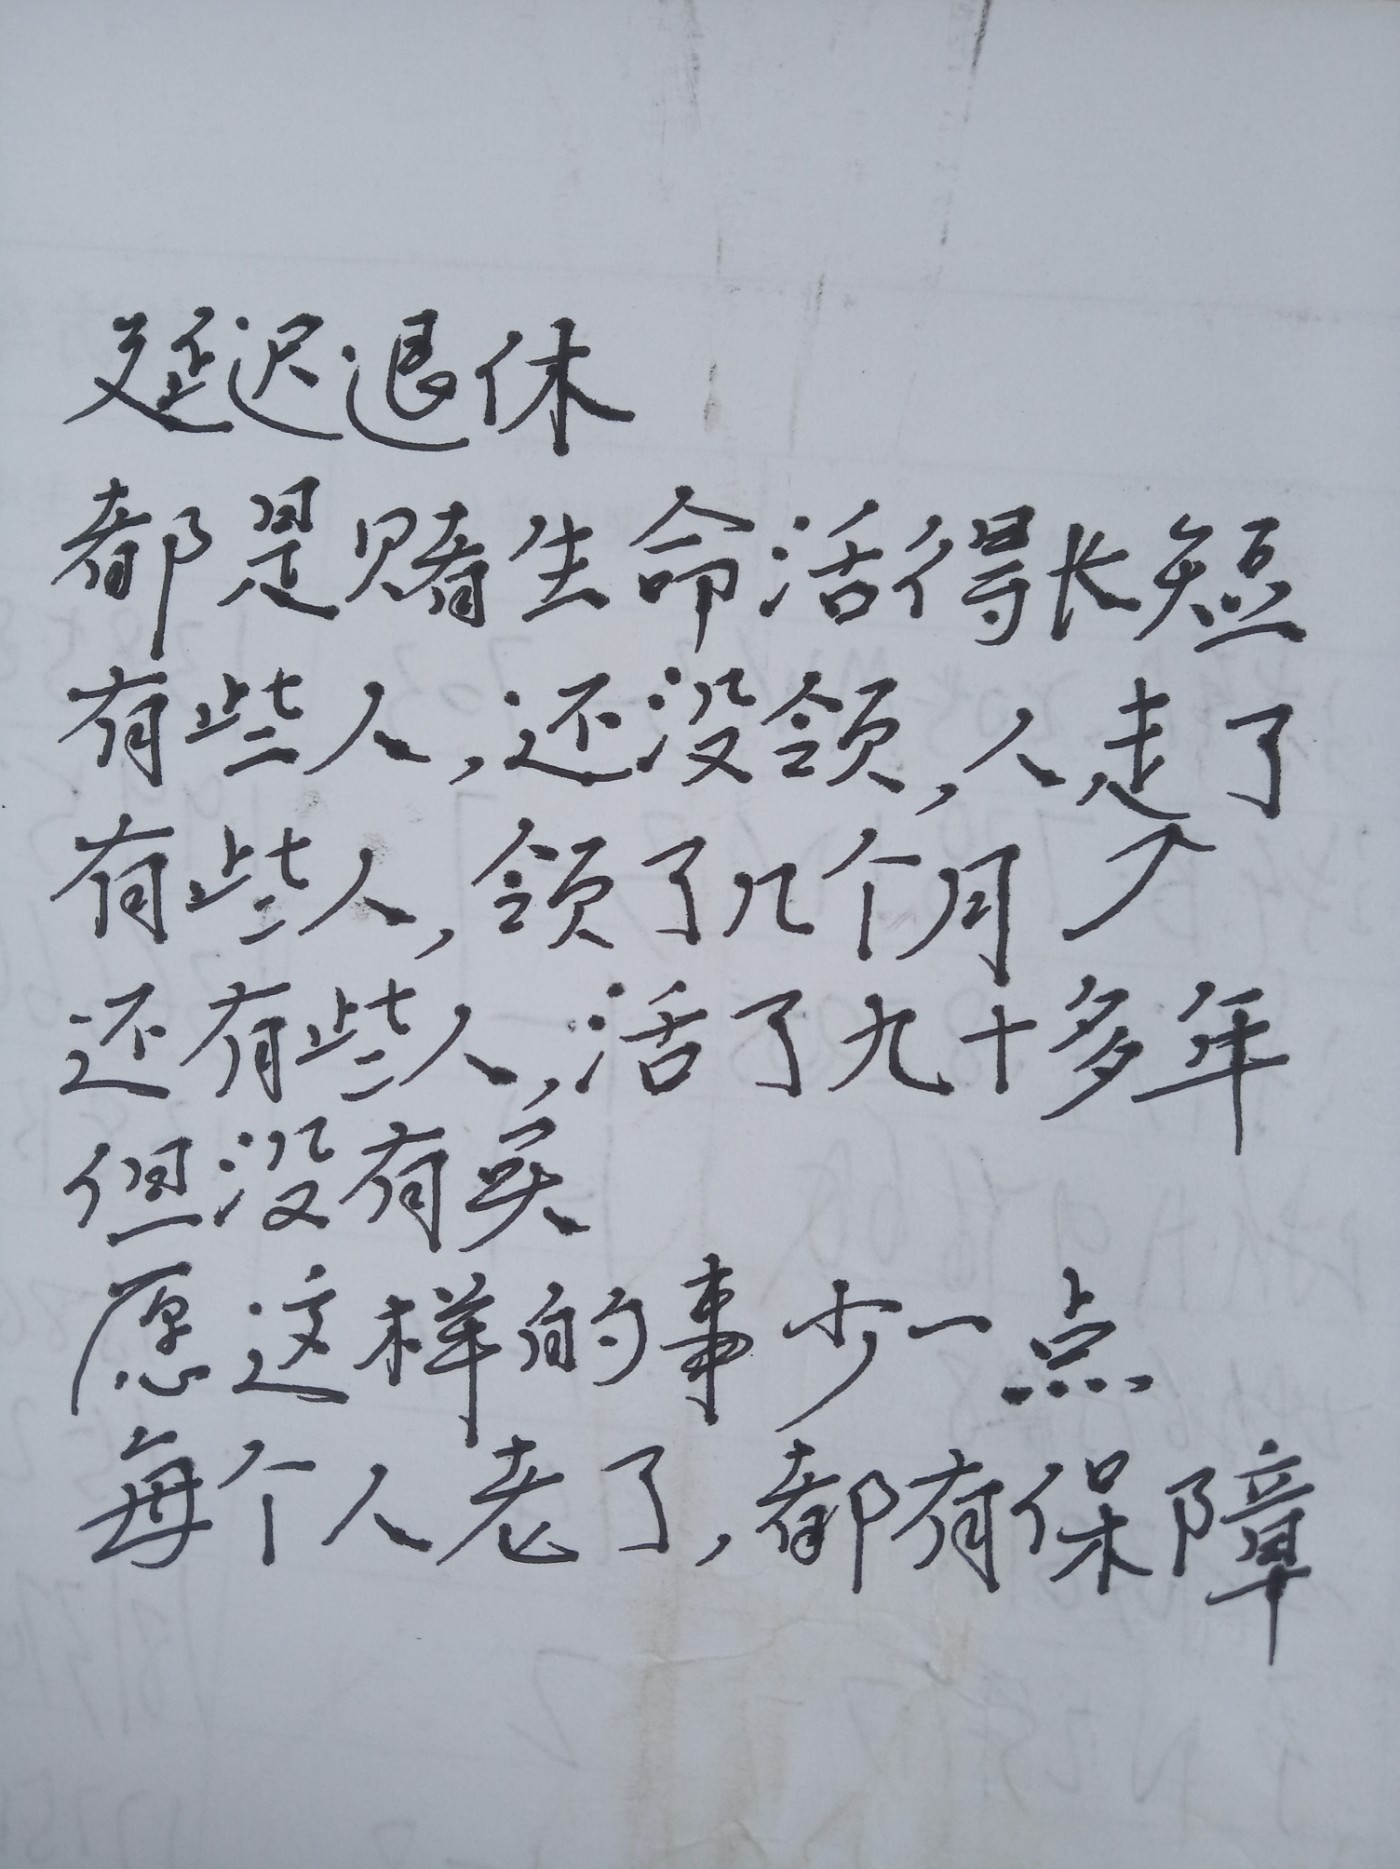 延迟退休
都是赌生命活得长短
有些人,还没领,人走了
有些人,领了几个月↗
还有些人,活了九十多年
但没有买
愿这样的事少一点
每个人老了,都有保障